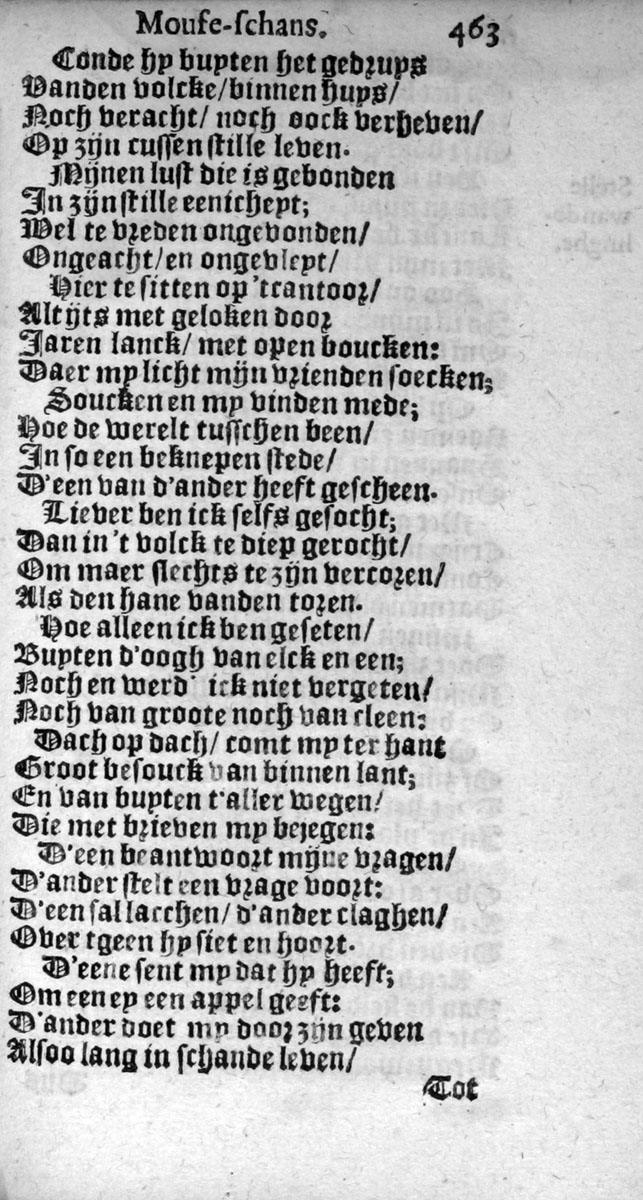 Moufe-schans. 463
Conde hy buyten het gedruys
Vanden volcke/binnen huys/
Noch veracht/ noch oock verheven/
Op zijn cussen stille leven.
Mijnen lust die is gebonden
In zijn stille eenicheyt;
Wel te vreden ongevonden/
Ongeacht/en ongevleyt/
Hier te sitten op 'tcantoor/
Altijts met geloken door
Jaren lanck/ met open boucken:
Daer my licht mijn vrienden soecken;
Soucken en my vinden mede;
Hoe de werelt tusschen been/
In so een beknepen stede/
D'een van d'ander heeft gescheen.
Liever ben ick selfs gesocht;
Dan in 't volck te diep gerocht/
Om maer slechts te zijn vercoren/
Als den hane vanden toren.
Hoe alleen ick ben geseten/
Buyten d'oogh van elck en een;
Noch en werd' ick niet vergeten/
Noch van groote noch van cleen:
Dach op dach/ comt my ter hant
Groot besouck van binnen lant;
En van buyten t'aller wegen/
Die met brieven my bejegen:
D'een beantwoort mijne vragen/
D'ander stelt een vrage voort:
D'een sal lacchen/ d'ander claghen/
Over tgeen hy siet en hoort.
D'eene sent my dat hy heeft;
Om een ey een appel geeft:
D'ander doet my door zijn geven
Alsoo lang in schande leven/
Tot